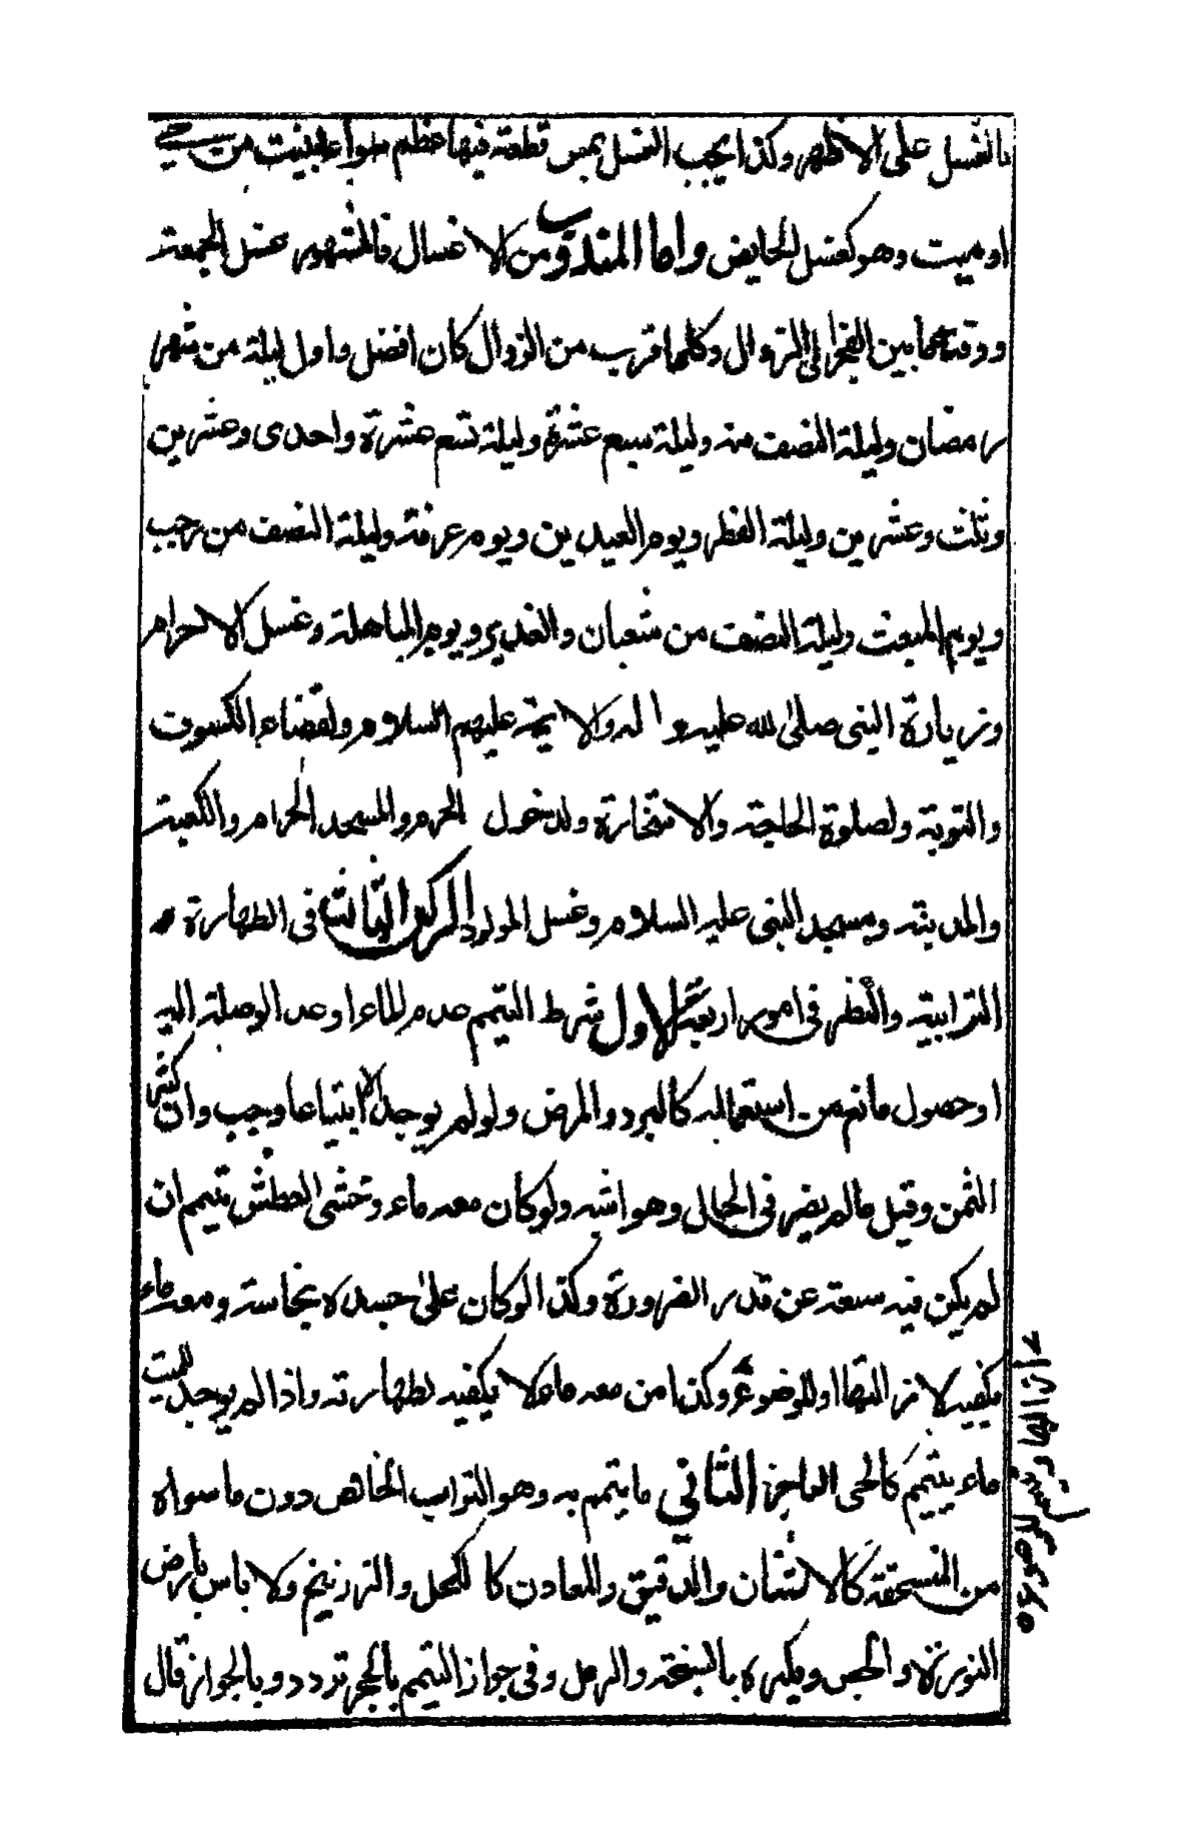 بالغسل على الاظهر وكذا يجب الغسل بمس قطعة فيها عظم سواء ابينت من حي
او ميت وهو كغسل الحايض واما المندوب من الاغسال فالمشهور غسل الجمعة
ووقته ما بين الفجر الى الزوال وكلما قرب من الزوال كان افضل واول ليلة من شهر
رمضان وليلة النصف منه وليلة سبع عشرة وليلة تسع عشرة واحدى وعشرين
وثلث وعشرين وليلة الفطر ويوم العيدين ويوم عرفة وليلة النصف من رجب
ويوم المبعث وليلة النصف من شعبان والغدير ويوم المباهلة وغسل الاحرام
وزيارة النبى صلى الله عليه واله والايمة عليهم السلام ولقضاء الكسوف
والتوبة ولصلوة الحاجة والاستخارة ولدخول الحرم والمسجد الحرام والكعبة
والمدينة ومسجد النبى عليه السلام وغسل المولود الركن الثالث فى الطهارة
الترابية والنظر فى امور اربعة الاول شرط التيمم عدم الماء او عدم الوصلة اليه
او حصول مانع من استعماله كالبرد والمرض ولو لم يوجد الا ابتياعا وجب وان كثر
الثمن وقيل ما لم يضر فى الحال وهو اشبه ولو كان معه ماء وخشى العطش تيمم ان
لم يكن فيه سعة عن قدر الضرورة وكذا لو كان على جسده نجاسة ومعه ماء
يكفيه لازالتها او للوضوء وكذا من معه ماء لا يكفيه لطهارته واذا لم يوجد للميت
ماء ييمم كالحى العاجز الثاني ما يتيمم به وهو التراب الخالص دون ما سواه
من المنسحقة كالاشنان والدقيق والمعادن كالكحل والزرنيخ ولا باس بارض
النورة والجص ويكره بالسبخة والرمل وفى جواز التيمم بالحجر تردد وبالجواز قال